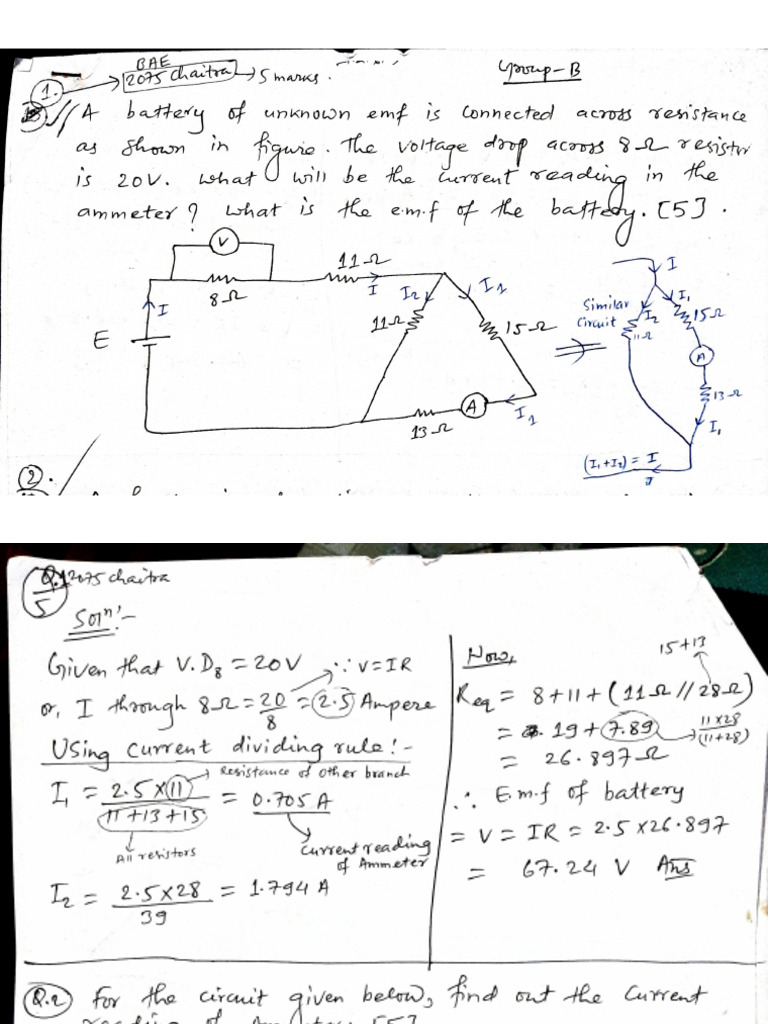 BAE
1. 2075 chaitra → 5 marks. Group-B
A battery of unknown emf is connected across resistance
as shown in figure. The voltage drop across 8Ω resistor
is 20V. What will be the current reading in the
ammeter? What is the e.m.f of the battery. [5].
V
8Ω
11Ω
I
I
E
I2
I1
11Ω
15Ω
13Ω
A
I1
Similar
Circuit
I
I1
I2
15Ω
11Ω
A
13Ω
I1
(I1+I2) = I
2.
Q.1 2075 chaitra
5
Solⁿ:-
Given that V.D8 = 20V ∵ V=IR
or, I through 8Ω = 20/8 = 2.5 Ampere
Using current dividing rule:-
Resistance of other branch
I1 = 2.5×11/11+13+15 = 0.705 A
All resistors
Current reading
of Ammeter
I2 = 2.5×28/39 = 1.794 A
Now,
15+13
Req = 8+11+(11Ω//28Ω)
= 19+7.89 → 11×28/(11+28)
= 26.897Ω
∴ E.m.f of battery
= V = IR = 2.5×26.897
= 67.24 V Ans
Q.2 For the circuit given below, find out the current
reading of Ammeter. [5]